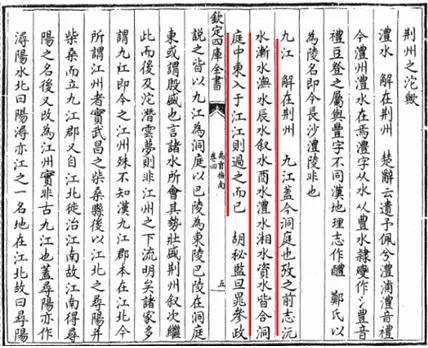 荆州之沱歟
澧水 解在荆州 楚辭云遺予佩兮澧浦澧音禮
今澧州澧水在焉澧字从水从豊水隷變作氵豊音
禮豆登之屬與豐字不同漢地理志作醴 鄭氏以
為陵名即今長沙澧陵非也
九江 解在荆州 九江蓋今洞庭也攷之前志沅
水漸水潕水辰水叙水酉水澧水湘水資水皆合洞
庭中東入于江江則過之而已 胡秘監旦晁參政
欽定四庫全書
禹貢指南
卷四
五
說之皆以九江為洞庭以巴陵為東陵巴陵在洞庭
東或謂殷盛也言諸水所會其勢壯盛荆州叙次繼
此而後及沱潛雲夢則非江州之下流明矣諸家多
謂九江即今之江州殊不知漢九江郡本在江北今
所謂江州者實武昌之柴桑縣後以江北之尋陽并
柴桑而立九江郡又自江北徙治江南故江南得尋
陽之名後又改為江州實非古九江也蓋尋陽亦作
潯陽水北曰陽潯亦江之一名地在江北故曰尋陽